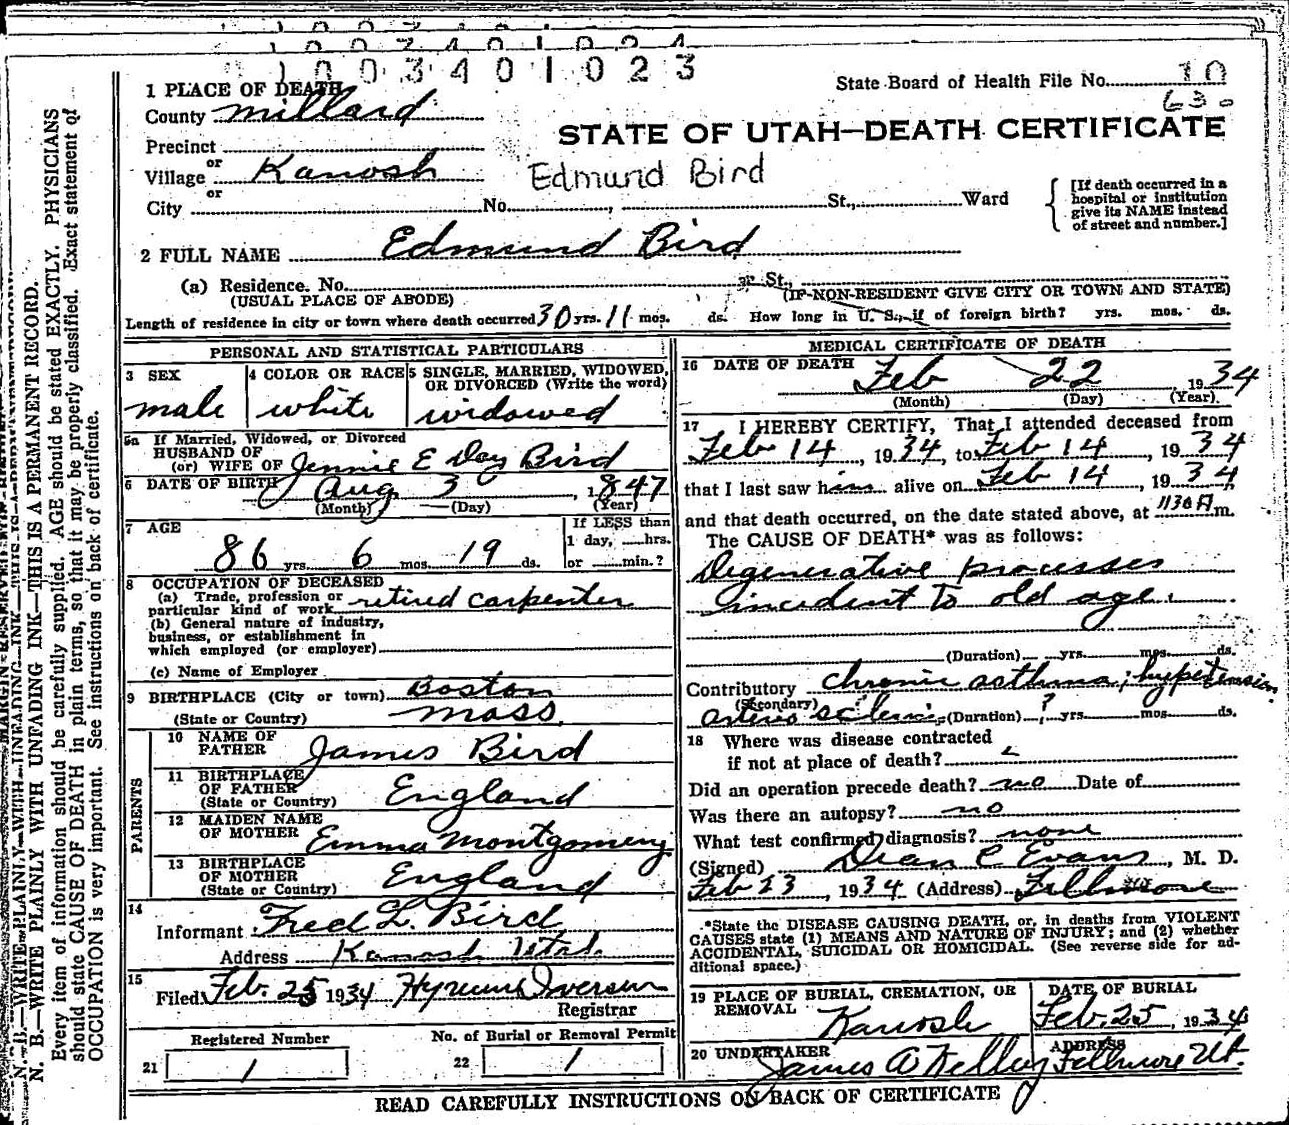 1003401023
State Board of Health File No. 10
630
STATE OF UTAH—DEATH CERTIFICATE
1 PLACE OF DEATH
County Millard
Precinct
or
Village Kanosh
or
Edmund Bird
City No. , St., Ward
[If death occurred in a
hospital or institution
give its NAME instead
of street and number.]
2 FULL NAME Edmund Bird
(a) Residence. No. St.,
(USUAL PLACE OF ABODE) (IF NON-RESIDENT GIVE CITY OR TOWN AND STATE)
Length of residence in city or town where death occurred 30 yrs. 11 mos. ds. How long in U. S., if of foreign birth? yrs. mos. ds.
PERSONAL AND STATISTICAL PARTICULARS
3 SEX
male
4 COLOR OR RACE
white
5 SINGLE, MARRIED, WIDOWED,
OR DIVORCED (Write the word)
widowed
5a If Married, Widowed, or Divorced
HUSBAND OF
(or) WIFE OF Jennie E Day Bird
6 DATE OF BIRTH Aug 3, 1847
(Month) (Day) (Year)
7 AGE
86 yrs. 6 mos. 19 ds.
If LESS than
1 day, hrs.
or min.?
8 OCCUPATION OF DECEASED
(a) Trade, profession or
particular kind of work retired carpenter
(b) General nature of industry,
business, or establishment in
which employed (or employer)
(c) Name of Employer
9 BIRTHPLACE (City or town) Boston
(State or Country) Mass.
PARENTS
10 NAME OF
FATHER James Bird
11 BIRTHPLACE
OF FATHER England
(State or Country)
12 MAIDEN NAME
OF MOTHER Emma Montgomery
13 BIRTHPLACE
OF MOTHER England
(State or Country)
14
Informant Fred L. Bird
Address Kanosh Utah
15
Filed Feb. 25 1934 Hyrum Iversen
Registrar
Registered Number
21 1
No. of Burial or Removal Permit
22 1
MEDICAL CERTIFICATE OF DEATH
16 DATE OF DEATH Feb 22, 1934
(Month) (Day) (Year)
17 I HEREBY CERTIFY, That I attended deceased from
Feb 14, 1934, to Feb 14, 1934
that I last saw him alive on Feb 14, 1934
and that death occurred, on the date stated above, at 1130 A m.
The CAUSE OF DEATH* was as follows:
Degenerative processes
incident to old age.
(Duration) yrs. mos. ds.
Contributory chronic asthma; hypertension
(Secondary)
arterio sclerosis (Duration) ? yrs. mos. ds.
18 Where was disease contracted
if not at place of death?
Did an operation precede death? no Date of
Was there an autopsy? no
What test confirmed diagnosis? none
(Signed) Dean C Evans, M. D.
Feb 23, 1934 (Address) Fillmore
*State the DISEASE CAUSING DEATH, or, in deaths from VIOLENT
CAUSES state (1) MEANS AND NATURE OF INJURY; and (2) whether
ACCIDENTAL, SUICIDAL OR HOMICIDAL. (See reverse side for ad-
ditional space.)
19 PLACE OF BURIAL, CREMATION, OR
REMOVAL Kanosh
DATE OF BURIAL
Feb. 25, 1934
20 UNDERTAKER
James A Kelley
ADDRESS
Fillmore Ut.
READ CAREFULLY INSTRUCTIONS ON BACK OF CERTIFICATE
N. B.—WRITE PLAINLY WITH UNFADING INK—THIS IS A PERMANENT RECORD.
Every item of information should be carefully supplied. AGE should be stated EXACTLY. PHYSICIANS
should state CAUSE OF DEATH in plain terms, so that it may be properly classified. Exact statement of
OCCUPATION is very important. See instructions on back of certificate.